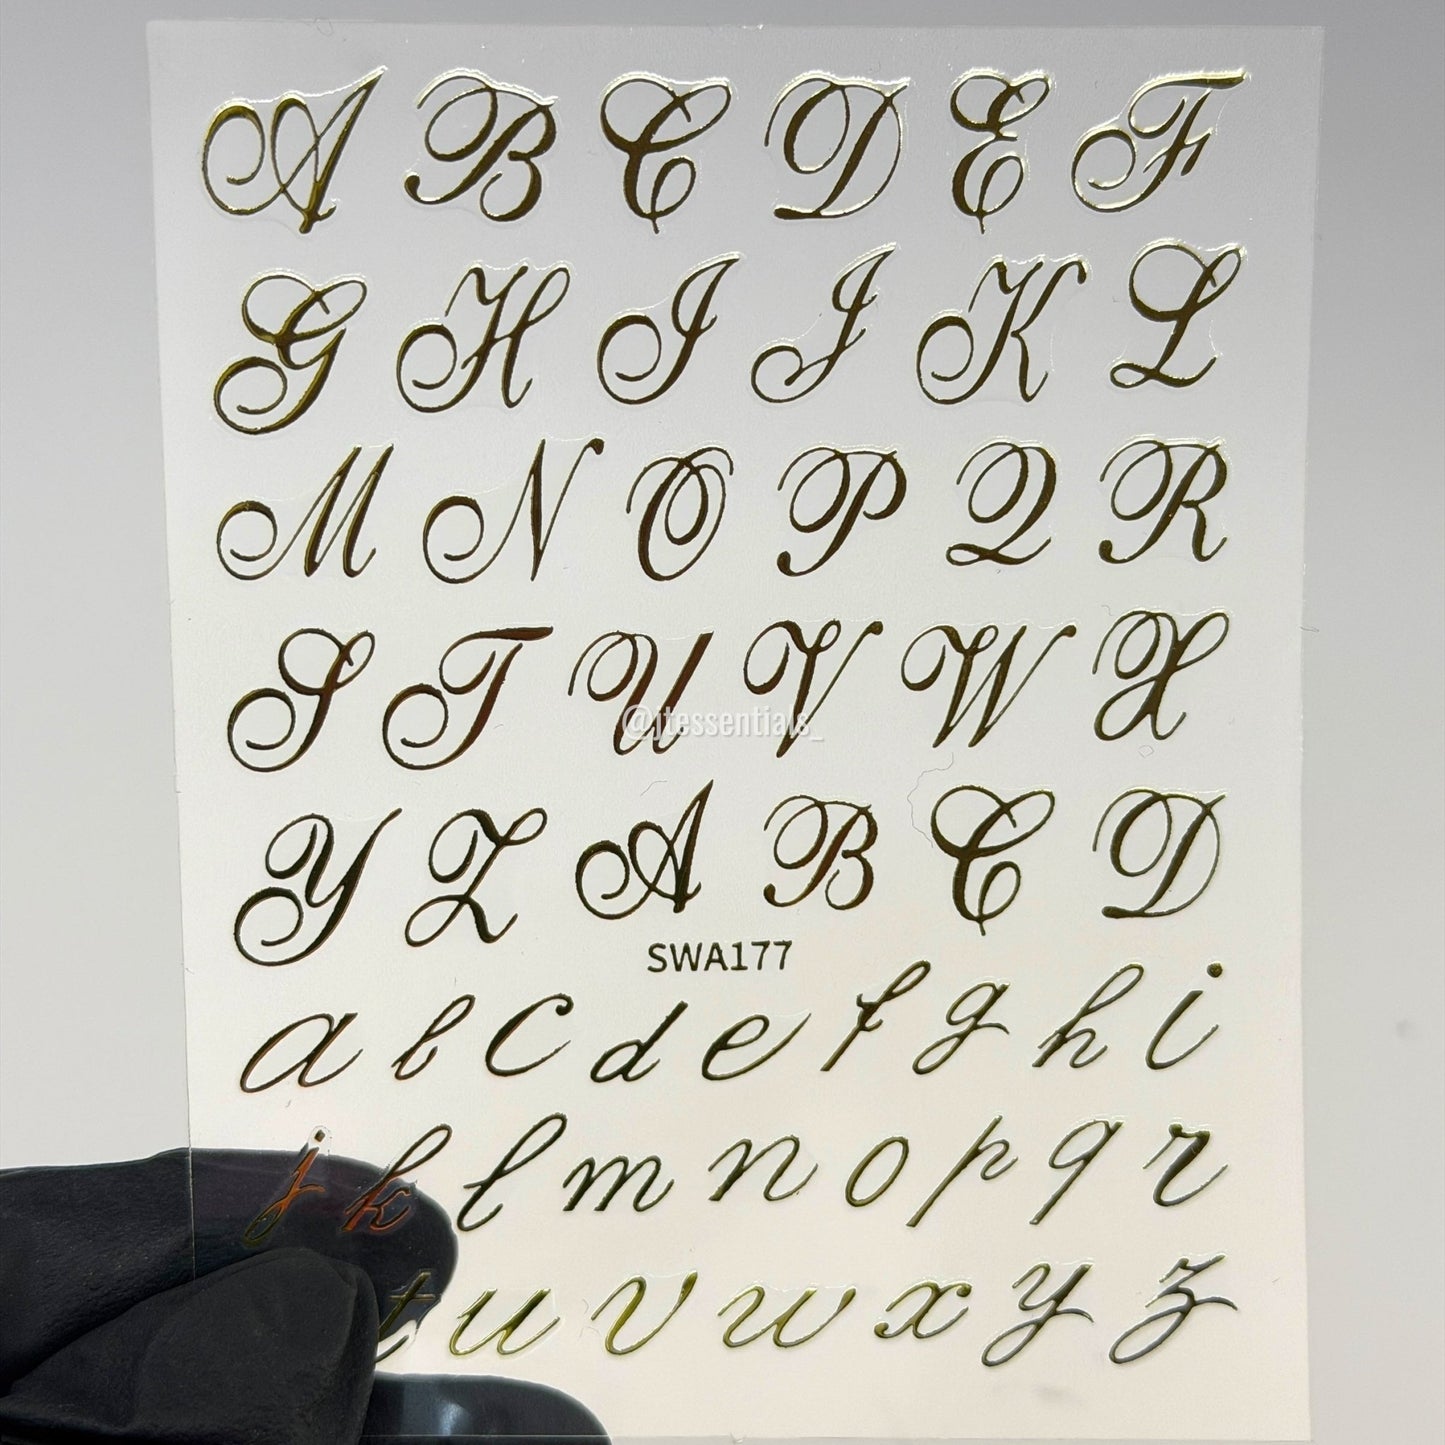 A B C D E F
G H I J K L
M N O P Q R
S T U V W X
@jtessentials_
Y Z A B C D
SWA177
a b c d e f g h i
j k l m n o p q r
t u v w x y z